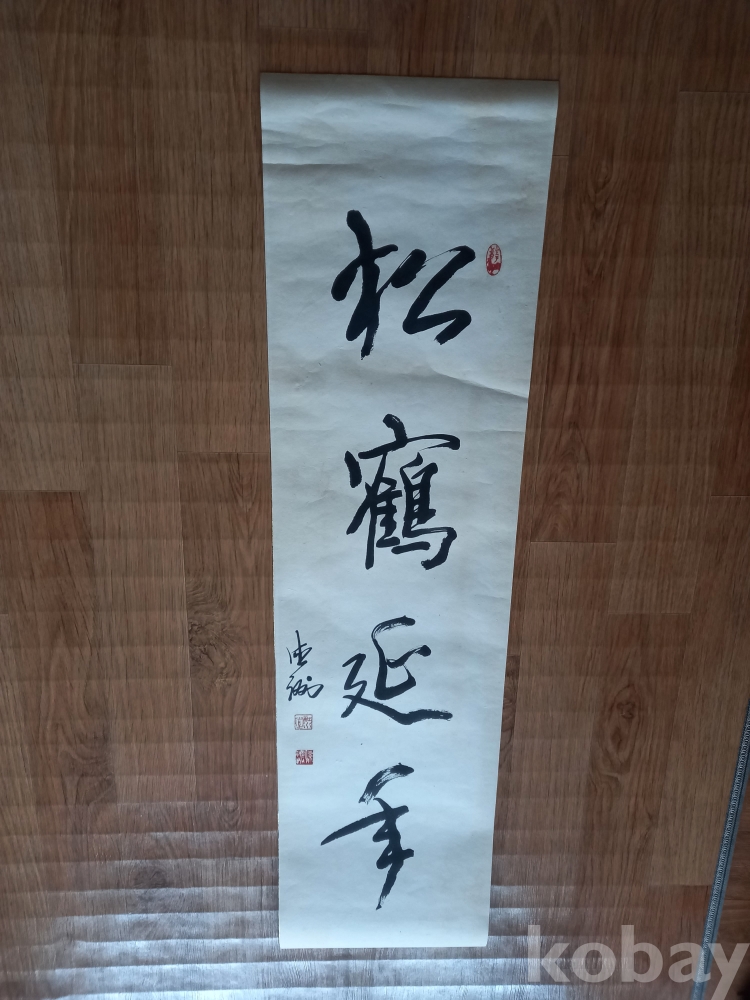 松鶴延年
kobay